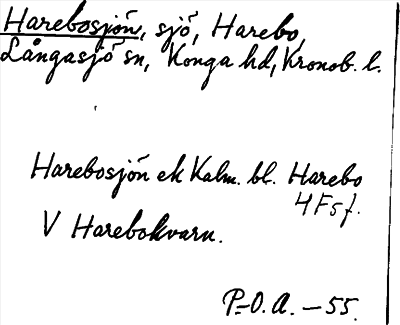 Harebosjön, sjö, Harebo,
Långasjö sn, Konga hd, Kronob. l.
Harebosjön ek Kalm. bl. Harebo
4F5f.
V Harebokvarn.
P.-O. A. – 55.